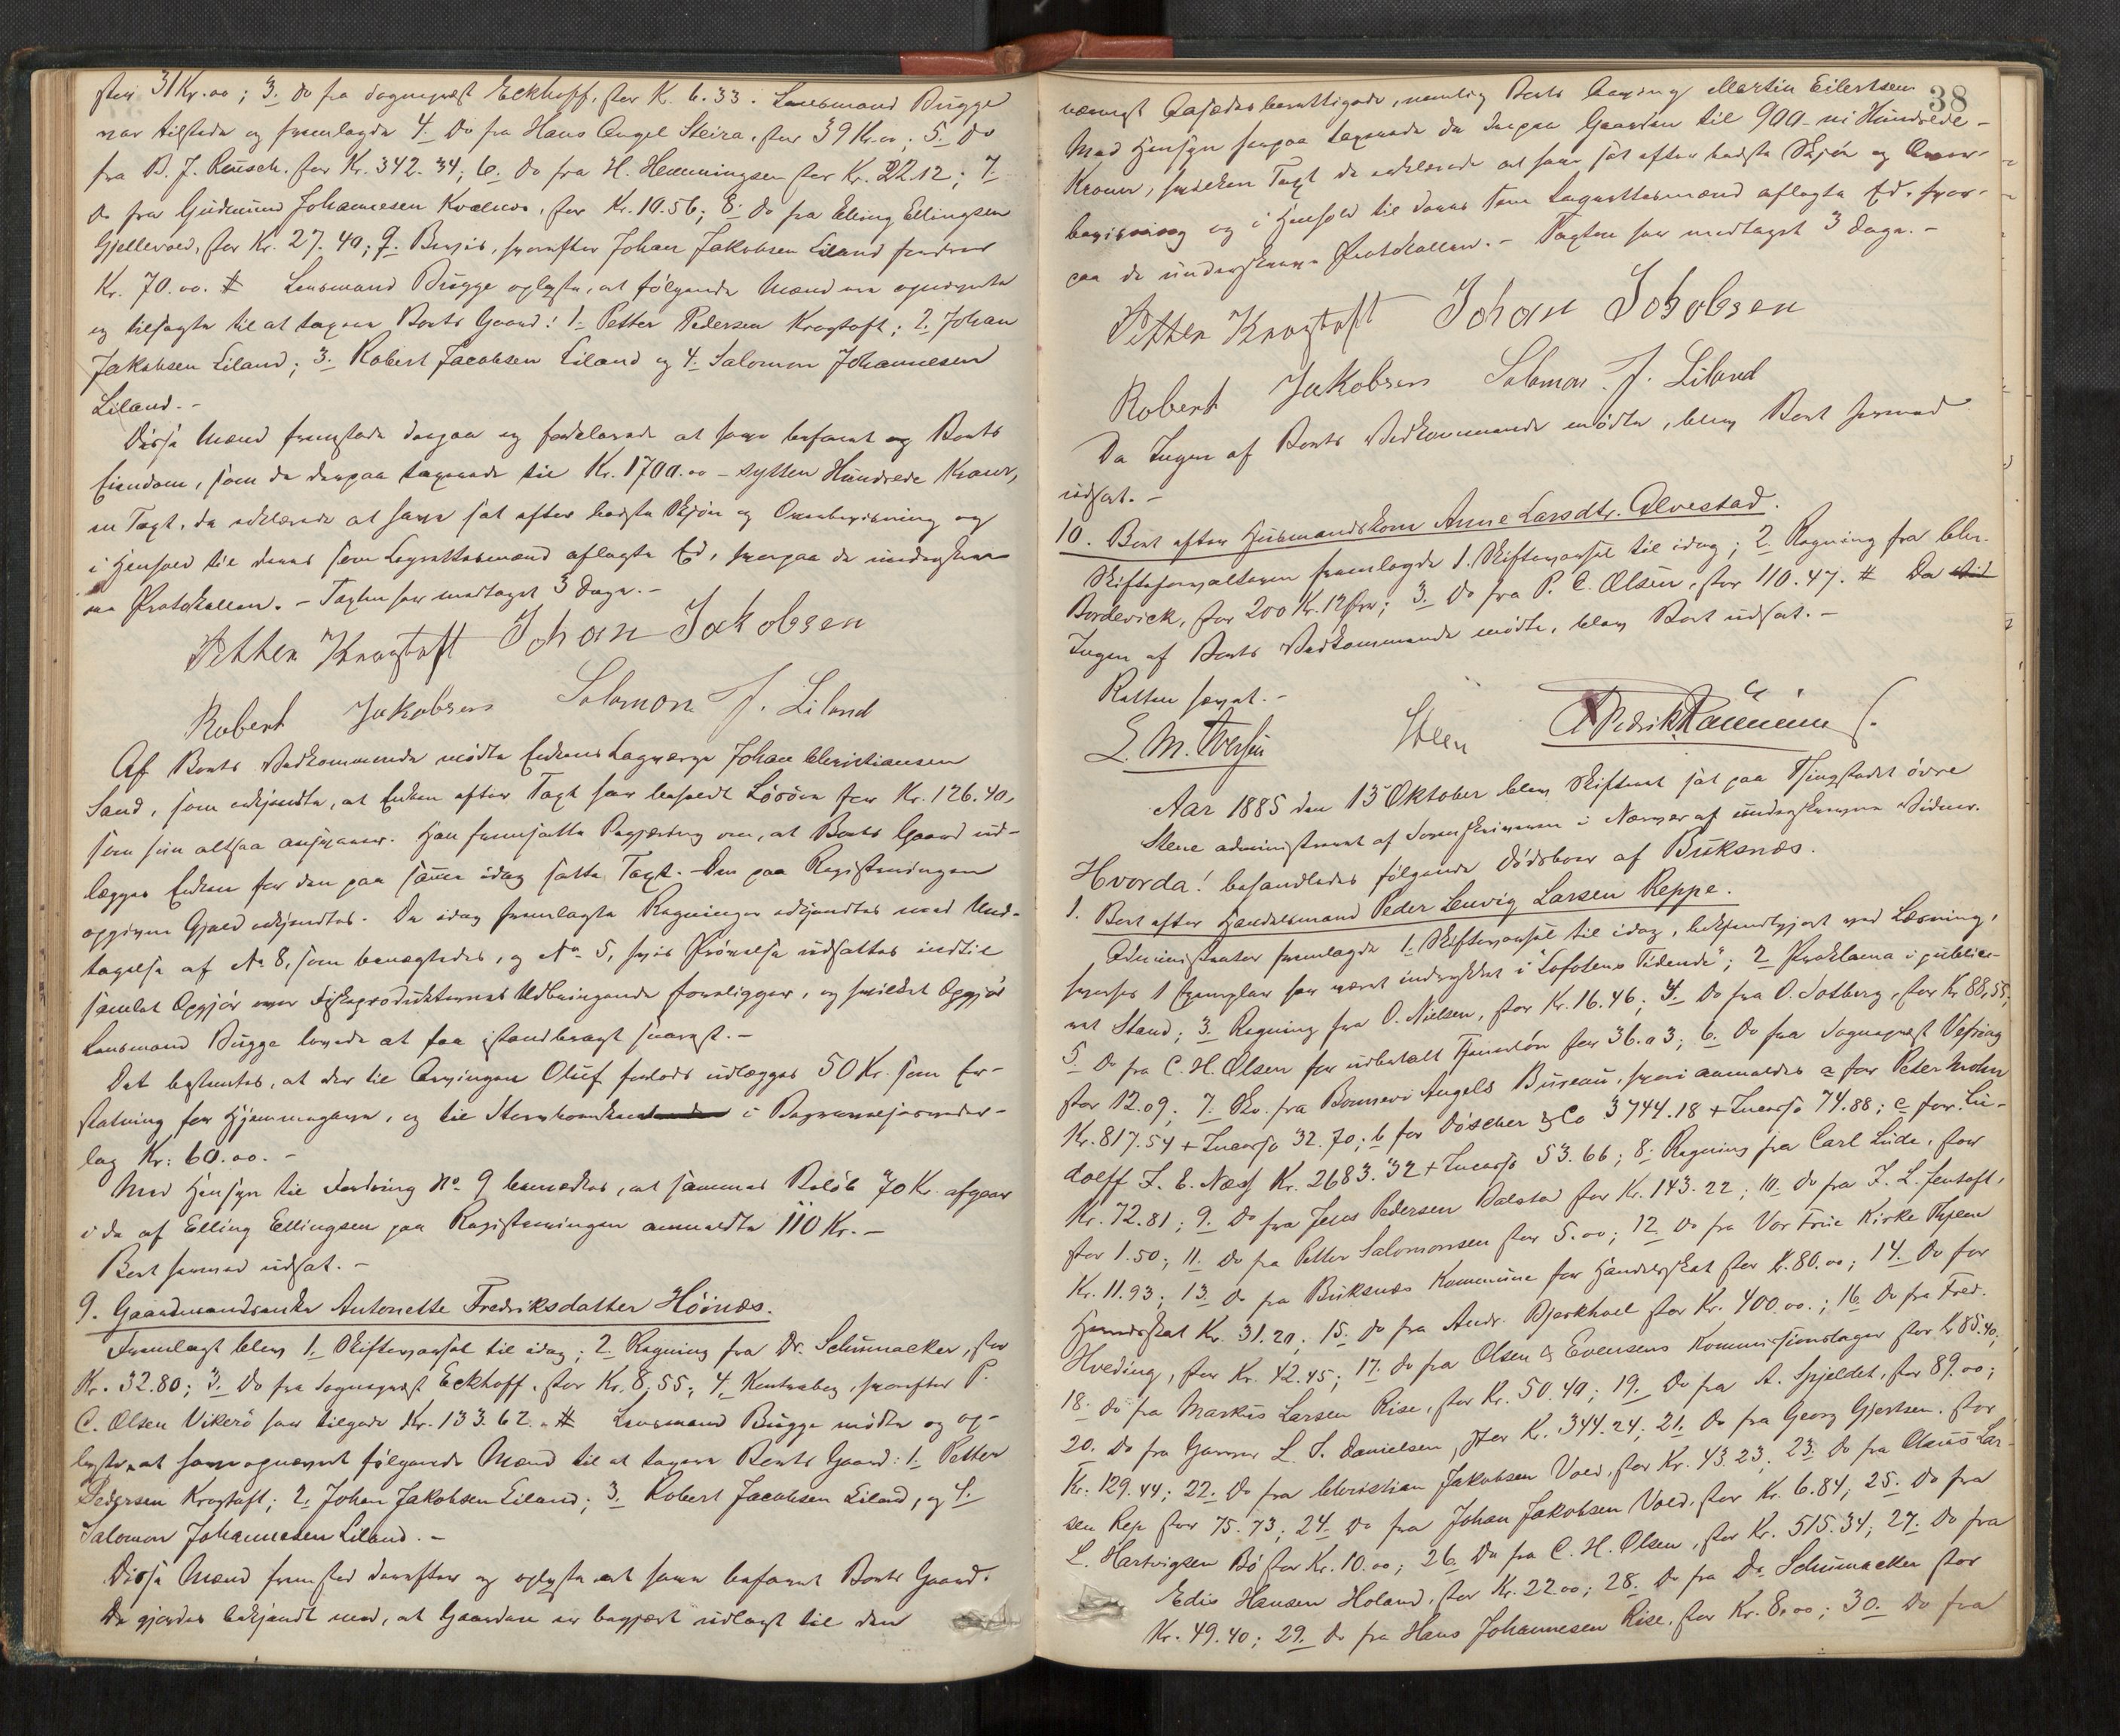 stor 31 Kr. 00; 3. Do fra Sogneprest Eckhoff, stor K. 6.33. Lensmand Bugge
var tilstede og fremlagde 4. Do fra Hans Angel Steira, stor 39 Kr. 00; 5. Do
fra B. J. Reusch. stor Kr. 342.34; 6. Do fra H. Hemmingsen stor Kr. 22.12; 7.
Do fra Gudmund Johannesen Kvalnes, stor Kr. 10.56; 8. Do fra Elling Ellingsen
Gjellevold, stor Kr. 27.40; 9. Bevis, hvorefter Johan Jakobsen Liland fordrer
Kr. 70.00. # Lensmand Bugge oplyste, at følgende Mænd var opnævnte
og tilsagte til at taxere Boets Gaard: 1. Petter Pedersen Kragtoft; 2. Johan
Jakobsen Liland; 3. Robert Jacobsen Liland og 4. Salomon Johannesen
Liland. -
Disse Mænd fremstode derpaa og forklarede at have befaret og Boets
Eiendom, som de derpaa taxerede til Kr. 1700.00 - sytten Hundrede Kroner,
en Taxt, de erklærede at have sat efter bedste Skjøn og Overbevisning og
i Henhold til deres som Lagrettesmænd aflagte Ed, hvorpaa de underskrev
Protokollen. - Taxten har medtaget 3 Dage. -
Petter Kragtoft Johan Jakobsen
Robert Jakobsen Salomon J. Liland
Af Boets Vedkommende mødte Enkens Lagværge Johan Christiansen
Sand, som erkjendte, at Enken efter Taxt har beholdt Løsøre for Kr. 126.40,
som hun altsaa ansvarer. Han fremsatte Begjæring om, at Boets Gaard ud-
lægges Enken for den paa samme idag satte Taxt. Den paa Registreringen
opgivne Gjæld erkjendtes. De idag fremlagte Regninger erkjendtes med Und-
tagelse af No 8, som benægtedes, og No 5, hvis Prøvelse udsattes indtil
samlet Opgjør over Fiskeprodukternes Udbringende foreligger, og hvilket Opgjør
Lensmand Bugge lovede at faa istandbragt snarest. -
Det bestemtes, at der til Arvingen Oluf forlods udlægges 50 Kr. som Er-
statning for Hjemmegave, og til i Begravelsesveder-
lag Kr: 60.00. -
Med Hensyn til Fordring No 9 bemærkes, at sammes Beløb 70 Kr. afgaar
i de af Elling Ellingsen paa Registreringen anmeldte 110 Kr. -
Boet hermed udsat. -
9. Gaardmandsenke Antonette Fredriksdatter Höinæs.
Fremlagt blev 1. Skiftevarsel til idag; 2. Regning fra Dr. Schumacker, stor
Kr. 32.80; 3. Do fra Sogneprest Eckhoff. stor Kr. 8.55; 4. Kontrabog, hvorefter P.
C. Olsen Vikerö har tilgode Kr. 133.62. # Lensmand Bugge mødte og op-
lyste, at have opnævnt følgende Mænd til at taxere Boets Gaard: 1. Petter
Pedersen Kragtoft; 2. Johan Jakobsen Liland; 3. Robert Jacobsen Liland, og 4.
Salomon Johannesen Liland. -
Disse Mænd fremstod derefter og oplyste at have befaret Boets Gaard.
De gjordes bekjendt med, at Gaarden er begjært udlagt til den
38
nærmest Aasædesberettigede, nemlig Boets Arving Martin Eilertsen
Med Hensyn herpaa taxerede de derpaa Gaarden til 900 - ni Hundrede -
Kroner, hvilken Taxt de erklærede at have sat efter bedste Skjøn og Over-
bevisning og i Henhold til deres som Lagrettesmænd aflagte Ed, hvor-
paa de underskrev Protokollen. - Taxten har medtaget 3 Dage. -
Petter Kragtoft Johan Jokobsen
Robert Jakobsen Salomon J. Liland
Da Ingen af Boets Vedkommende mødte, blev Boet hermed
udsat. -
10. Boet efter Husmandskone Anne Larsdtr. Alvestad.
Skifteforvalteren fremlagde 1. Skiftevarsel til idag; 2. Regning fra Chr.
Bordevick, stor 200 Kr. 12 Øre; 3. Do fra P. C. Olsen, stor 110.47. # Da
Ingen af Boets Vedkommende mødte, blev Boet udsat. -
Retten hævet. -
E. M. Iversen Steen
Aar 1885 den 13 Oktober blev Skifteret sat paa Thingstedet övre
Stene administreret af Sorenskriveren i Nærvær af underskrevne Vidner.
Hvorda! behandledes følgende Dødsboer af Buksnæs.
1. Boet efter Handelsmand Peder Lenvig Larsen Reppe.
Administrator fremlagde 1. Skiftevarsel til idag, bekjendtgjort ved Læsning,
hvorhos 1 Exemplar har været indrykket i "Lofotens Tidende"; 2. Proklama i publice-
ret Stand; 3. Regning fra O. Nielsen, stor Kr. 16.46; 4. Do fra O. Solberg, stor Kr 88.55,
5. Do fra C. H. Olsen for udbetalt Tjenerløn stor 36.03; 6. Do fra Sogneprest Vefring
stor 12.09; 7. Skr. fra Bonnevi Angels Bureau, hvori anmeldes a for Peter Mohn
Kr. 817.54 + Incasso 32.70; b for Döscher & Co 3744.18 + Incasso 74.88; c for Lu-
dolff I. E. Næss Kr. 2683.32 + Incasso 53.66; 8. Regning fra Carl Lude, stor
Kr. 72.81; 9. Do fra Jens Pedersen Dalstad stor Kr. 143.22; 10. Do fra J. L. Jentoft,
stor 1.50; 11. Do fra Petter Salomonsen stor 5.00; 12. Do fra Vor Frue Kirke Thjem
Kr. 11.93; 13. Do fra Buksnæs Kommune for Handelsskat stor K. 80.00; 14. Do for
Herredsskat Kr. 31.20; 15. Do fra Andr. Bjerkhoel stor Kr. 400.00; 16. Do fra Fred.
Hveding, stor Kr. 42.45; 17. Do fra Olsen & Evensens Kommissionslager stor Kr 85.40;
18. Do fra Markus Larsen Rise, stor Kr. 50.40; 19. Do fra A. Spjeldet, stor 89.00;
20. Do fra Garver L. S. Danielsen, stor K. 344.24; 21. Do fra Georg Gjertsen. stor
Kr. 129.44; 22. Do fra Christian Jakobsen Vold, stor Kr. 43.23; 23. Do fra Claus Lar-
sen Rep stor 75.73; 24. Do fra Johan Jakobsen Vold, stor Kr. 6.84; 25. Do fra
L. Hartvigsen Bö stor Kr. 10.00; 26. Do fra C. H. Olsen, stor Kr. 515.34; 27. Do fra
Edis Hansen Holand, stor Kr. 22.00; 28. Do fra Dr. Schumacker stor
Kr. 49.40; 29. Do fra Hans Johannesen Rise, stor Kr. 8.00; 30. Do fra